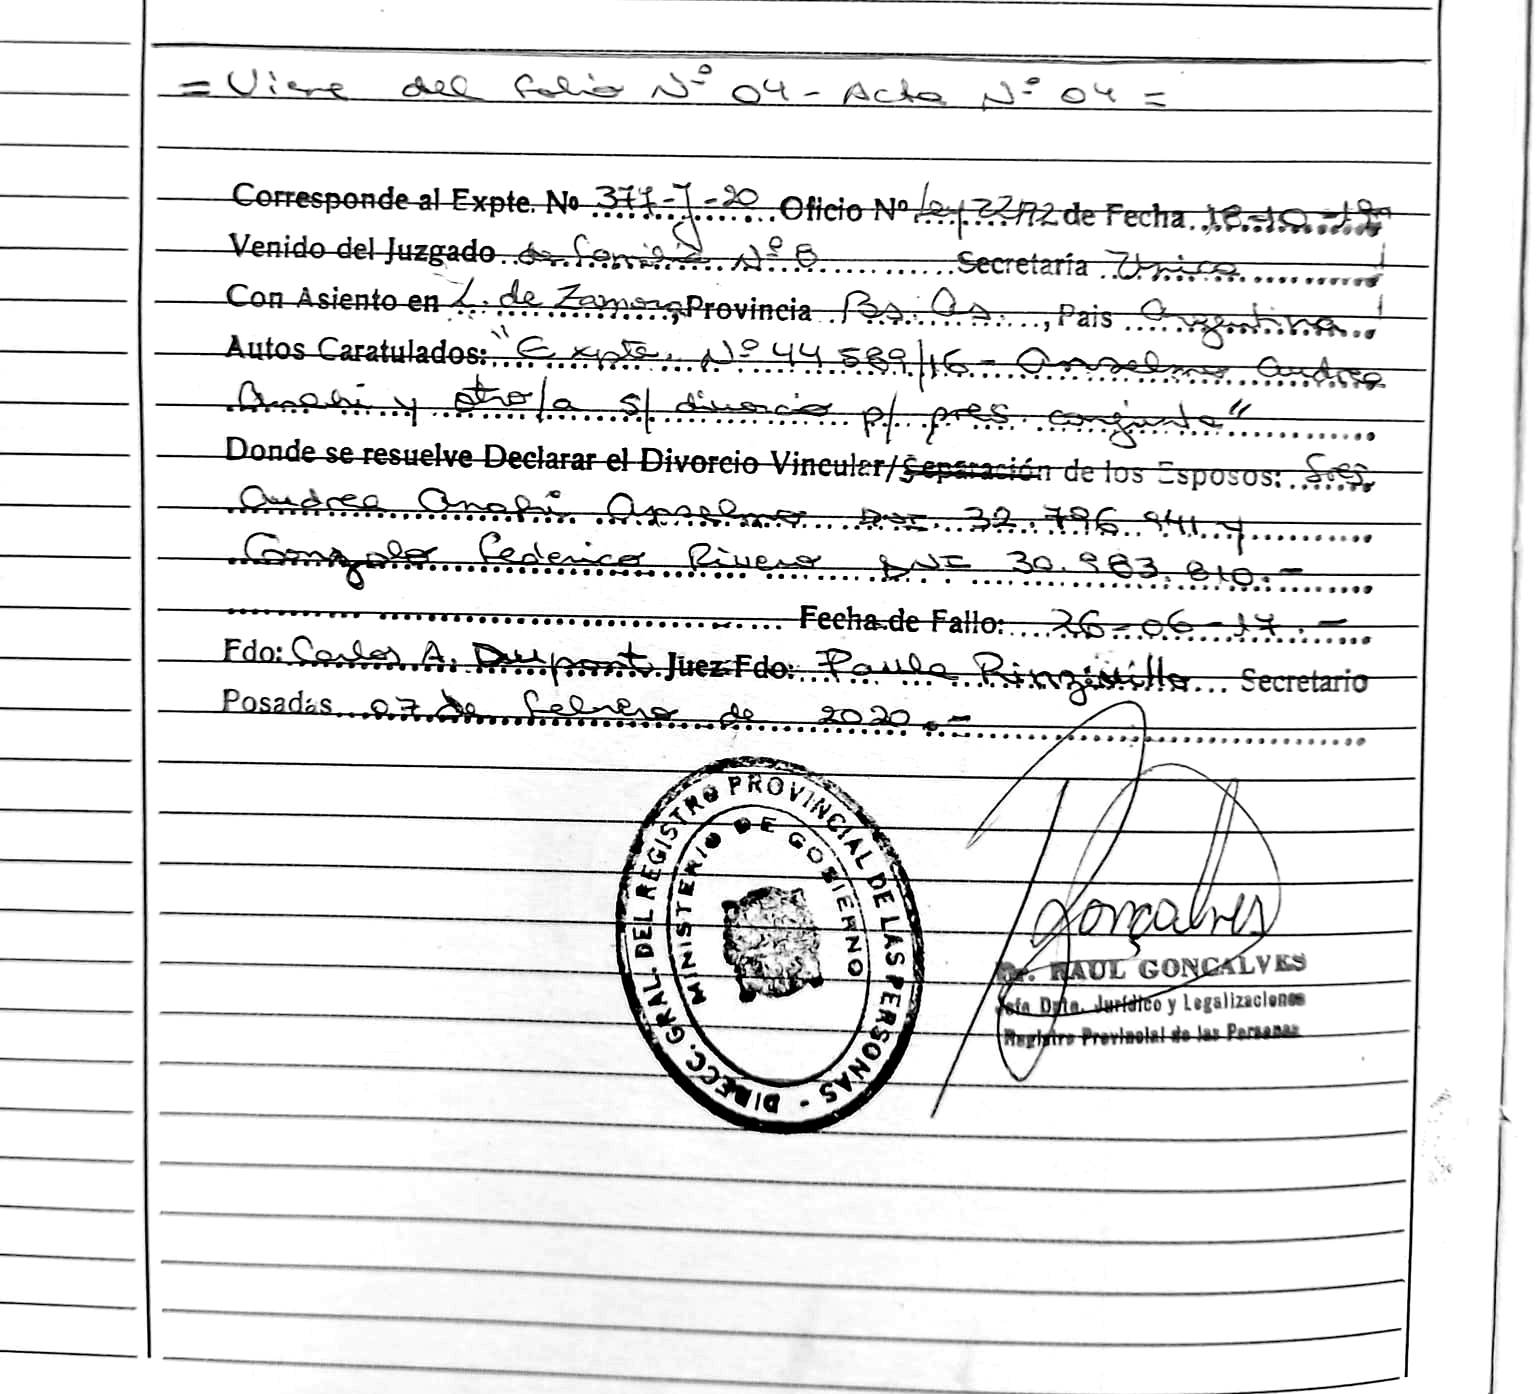 = Viene del folio Nº 04 - Acta Nº 04 =
Corresponde al Expte. No 377-J-20 Oficio Nº Ley 22172 de Fecha 18-10-19
Venido del Juzgado de familia Nº 8 Secretaría Unica
Con Asiento en L. de Zamora, Provincia Bs. As. , Pais Argentina
Autos Caratulados: "Expte. Nº 44589/16 - Anselmo Andrea
Anahi y otro/a s/ divorcio p/ pres conjunta"
Donde se resuelve Declarar el Divorcio Vincular/Separación de los Esposos: Sres
Andrea Anahi Anselmo DNI 32.796.941 y
Gonzalo Federico Rivero DNI 30.983.810.-
Fecha de Fallo: 26-06-17.-
Fdo: Carlos A. Dupont Juez Fdo: Paula Rinzivillo Secretario
Posadas 07 de febrero de 2020.-
DIRECC. GRAL. DEL REGISTRO PROVINCIAL DE LAS PERSONAS -
MINISTERIO DE GOBIERNO
Gonçalves
Dr. RAUL GONÇALVES
Jefe Dpto. Jurídico y Legalizaciones
Registro Provincial de las Personas